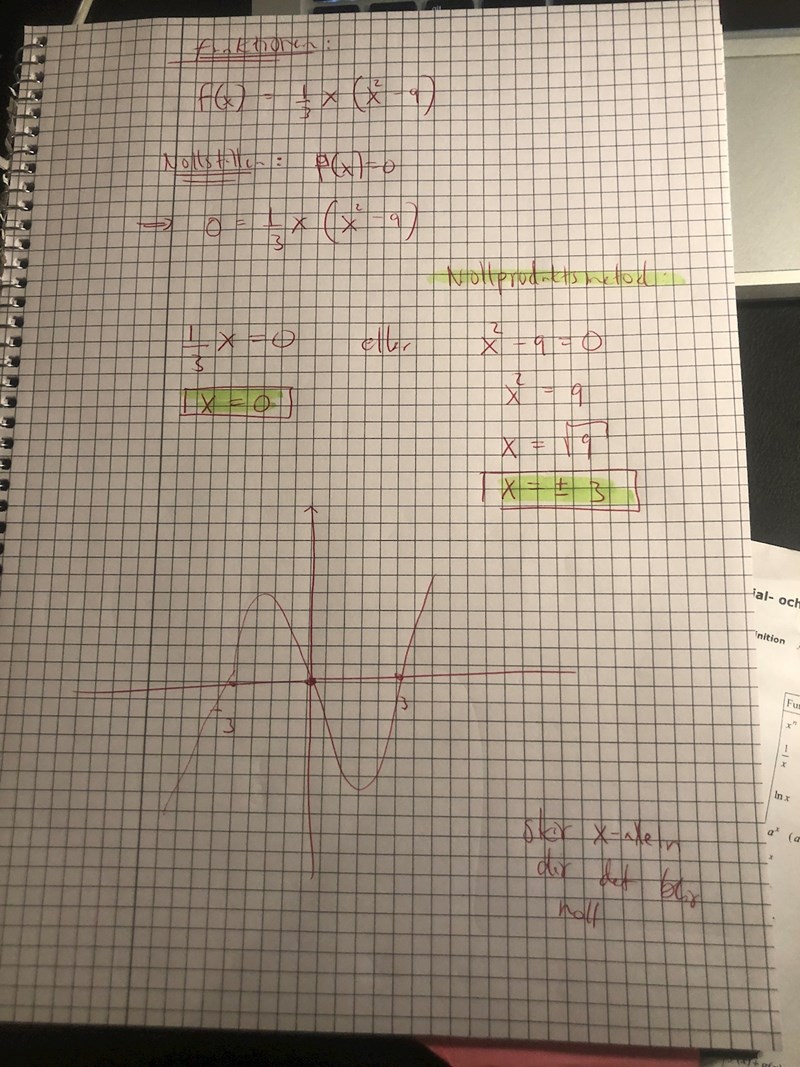 funktionen:
f(x) = 1/3 x (x² - 9)
Nollställen: f(x)=0
⇒ 0 = 1/3 x (x² - 9)
Nollproduktsmetod.
1/3 x = 0 eller x² - 9 = 0
x = 0
x² = 9
x = √9
x = ± 3
-3
3
skär x-axeln
där det blir
noll
ial- och
inition
Fun
xⁿ
1/x
ln x
aˣ (a